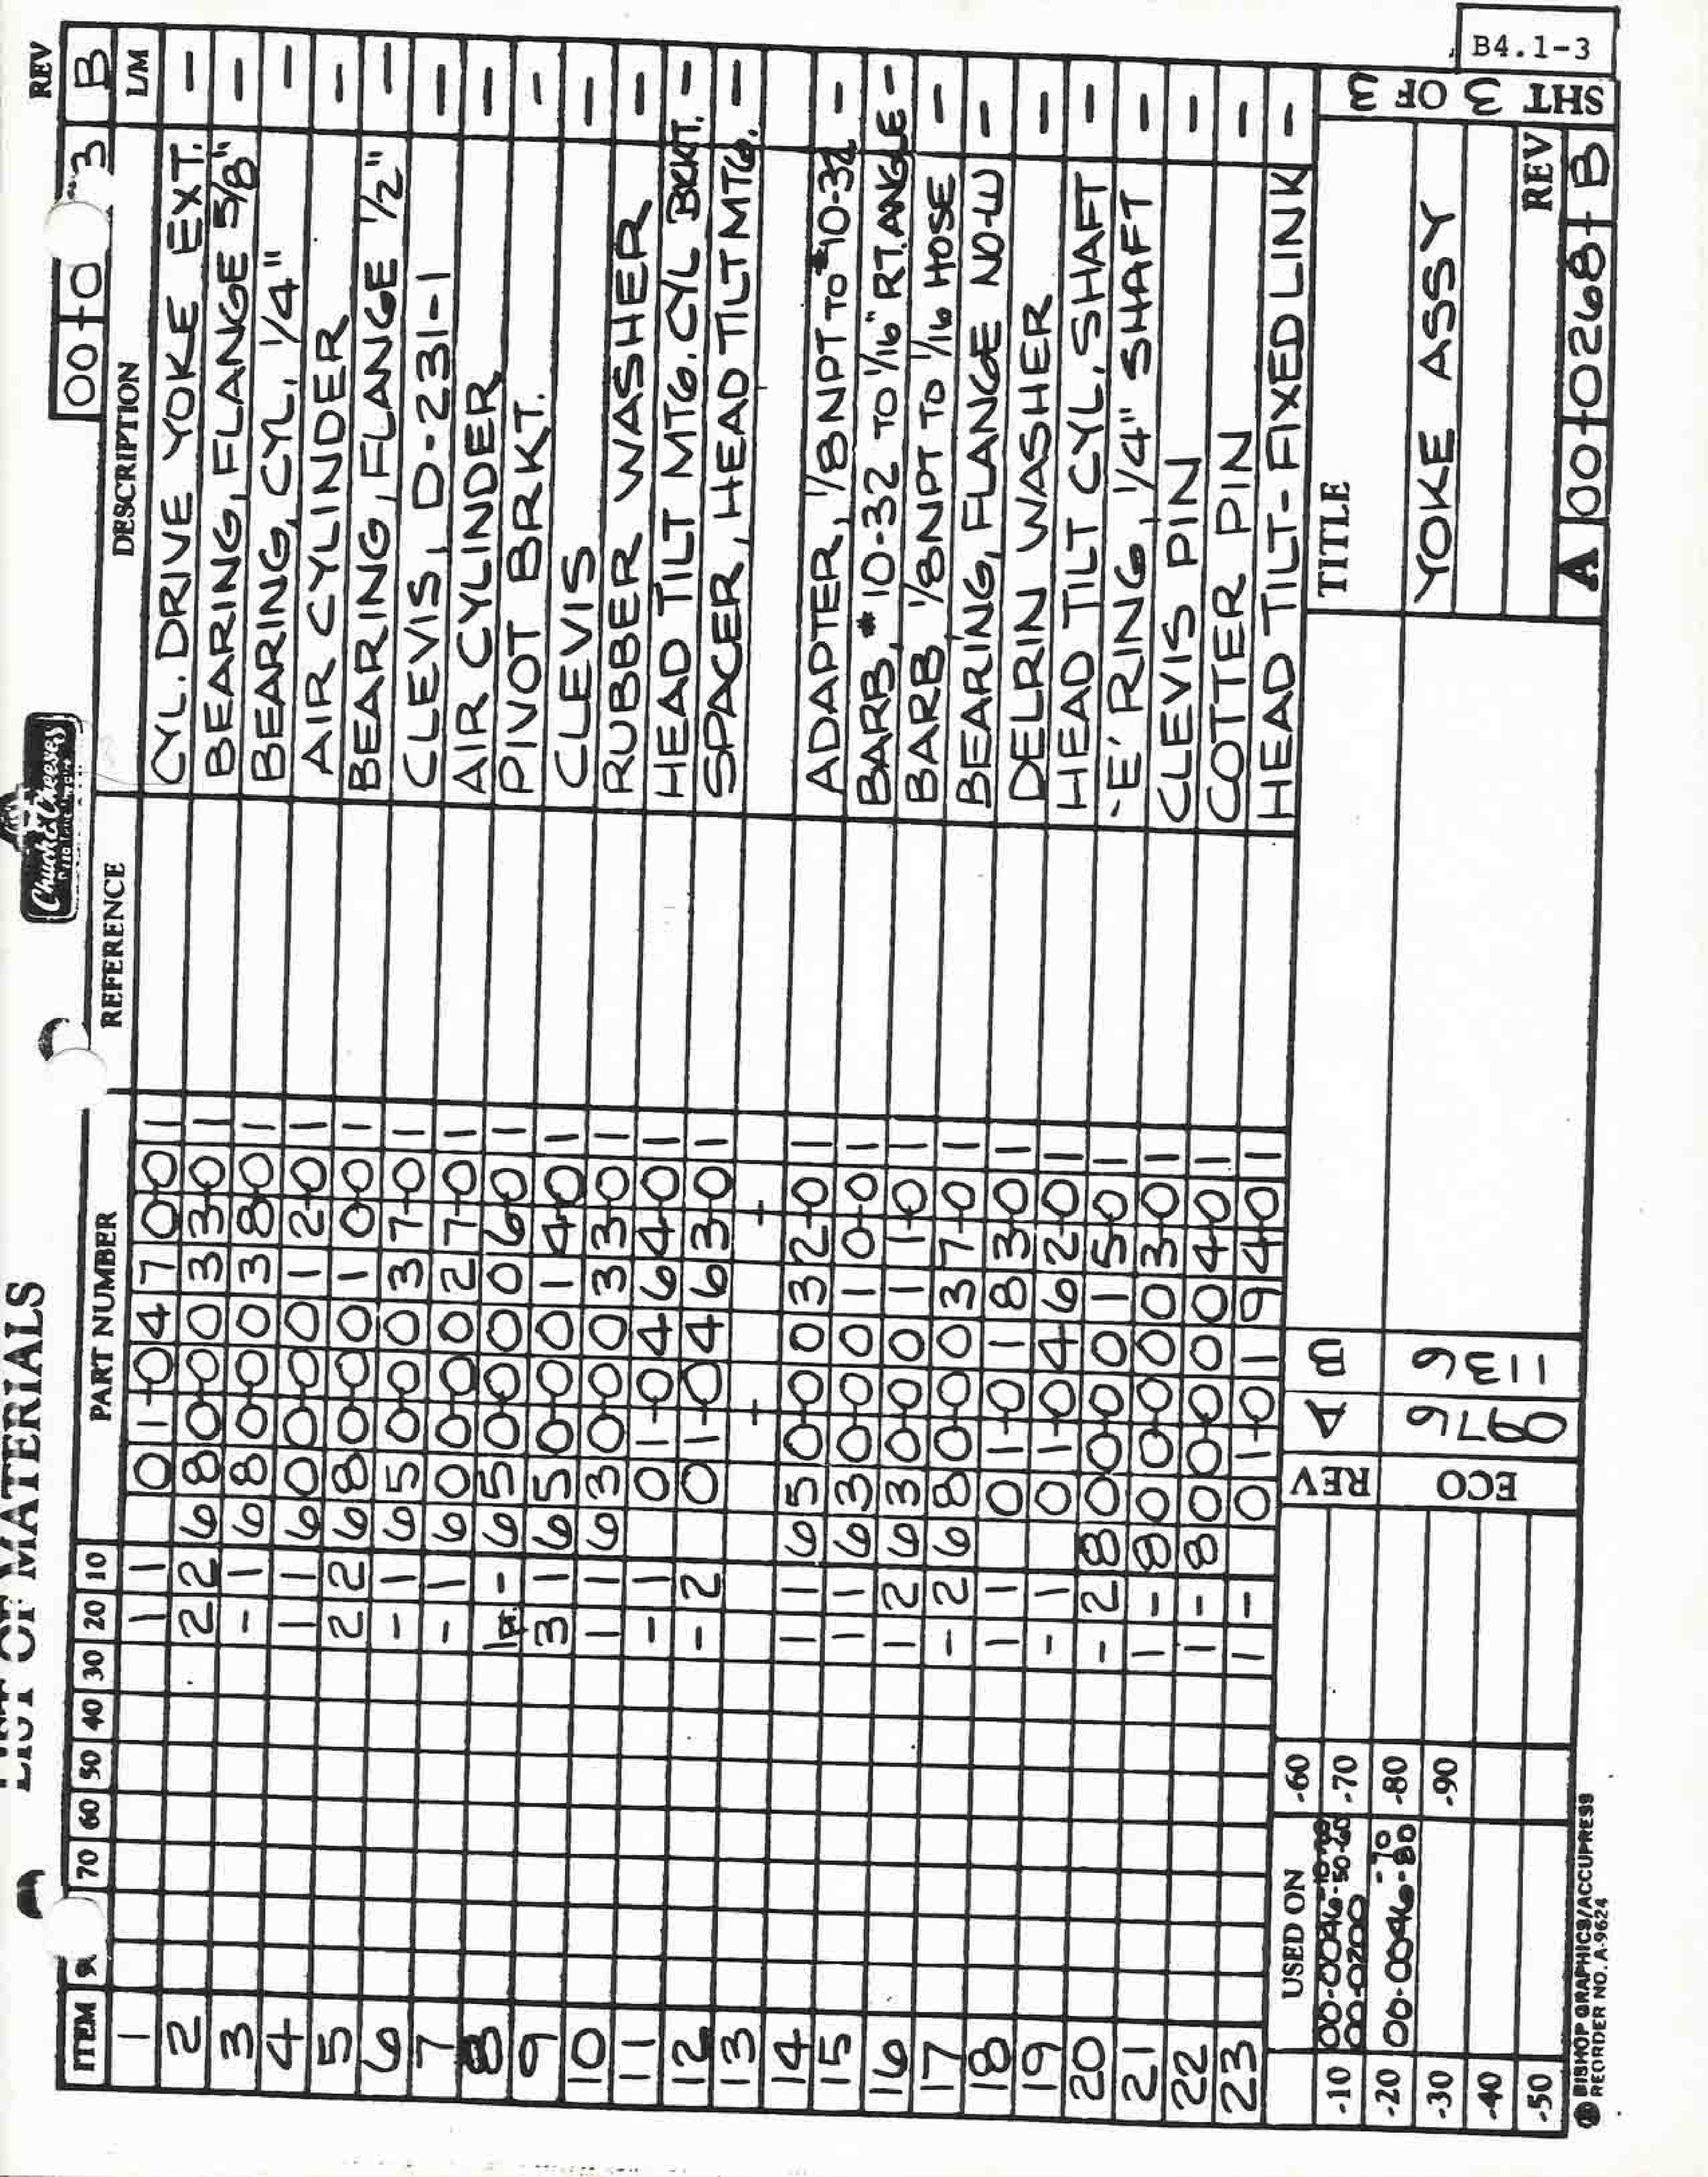 LIST OF MATERIALS
Chuck E. Cheese's
00-0 3 B
REV
ITEM 70 60 50 40 30 20 10 PART NUMBER REFERENCE DESCRIPTION L/M
1 1 1 01-0470-01 CYL. DRIVE YOKE EXT. -
2 2 2 680-0033-01 BEARING, FLANGE 5/8" -
3 - 1 680-0038-01 BEARING, CYL, 1/4" -
4 1 1 600-0012-01 AIR CYLINDER -
5 2 2 680-0010-01 BEARING, FLANGE 1/2" -
6 - 1 650-0037-01 CLEVIS, D-231-1 -
7 - 1 600-0027-01 AIR CYLINDER -
8 - 650-0006-01 PIVOT BRKT. -
9 3 1 650-0014-01 CLEVIS -
10 1 1 630-0033-01 RUBBER WASHER -
11 - 1 01-0464-01 HEAD TILT MTG. CYL BRKT. -
12 - 2 01-0463-01 SPACER, HEAD TILT MTG. -
13
14 1 1 650-0032-01 ADAPTER, 1/8NPT TO #10-32 -
15 1 1 630-0010-01 BARB, #10-32 TO 1/16" RT. ANGLE -
16 1 2 630-0011-01 BARB 1/8NPT TO 1/16 HOSE -
17 - 2 680-0037-01 BEARING, FLANGE NO-W -
18 1 1 01-0183-01 DELRIN WASHER -
19 - 1 01-0462-01 HEAD TILT CYL. SHAFT -
20 - 2 800-0015-01 'E' RING, 1/4" SHAFT -
21 1 - 800-0003-01 CLEVIS PIN -
22 1 - 800-0004-01 COTTER PIN -
23 1 - 01-0194-01 HEAD TILT-FIXED LINK -
USED ON
-10 00-0046-10-20 -50-60 00-0200
-20 00-0046-80 -70
-30
-40
-50
-60
-70
-80
-90
REV A B
ECO 0976 1136
TITLE
YOKE ASSY
SHT 3 OF 3
REV
A 00-0268- B
BISHOP GRAPHICS/ACCUPRESS
REORDER NO. A-9624
B4.1-3